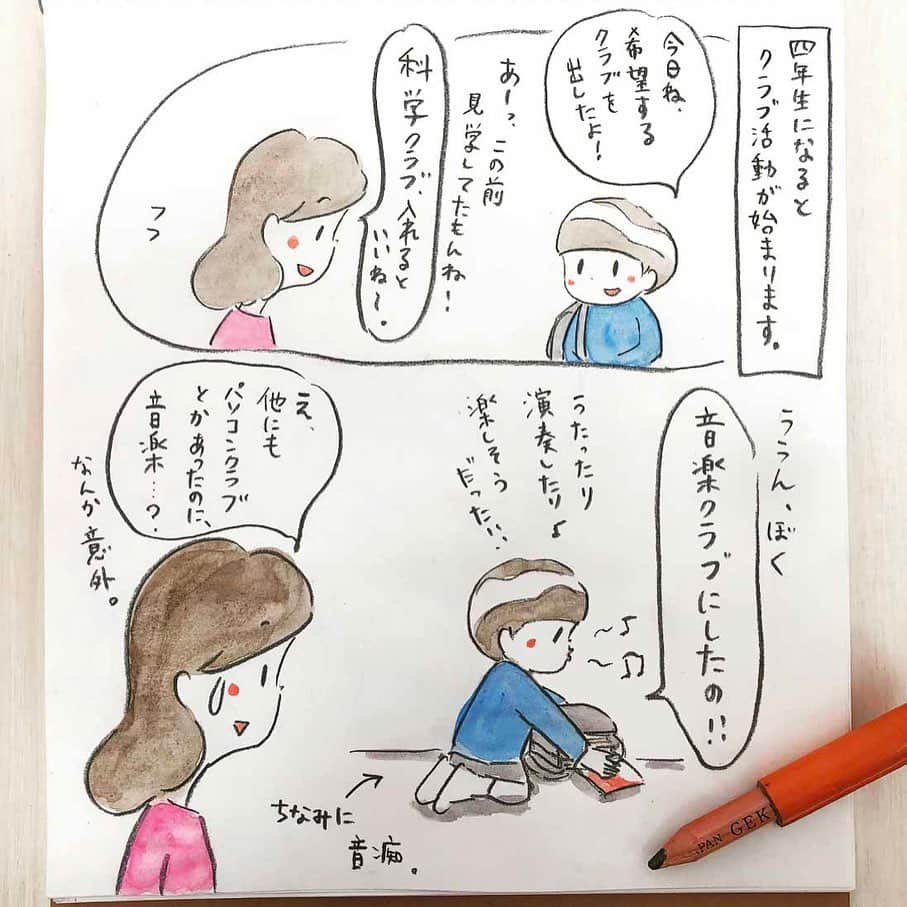 四年生になると
クラブ活動が始まります。
今日ね、
希望する
クラブを
出したよ!
あーっ、この前
見学してたもんね!
科学クラブ、入れると
いいね〜。
ううん、ぼく
音楽クラブにしたの!!
うたったり
演奏したり♪
楽しそう
だった!!
え、
他にも
パソコンクラブ
とかあったのに、
音楽……?
なんか意外。
ちなみに
音痴。
PAN GEK